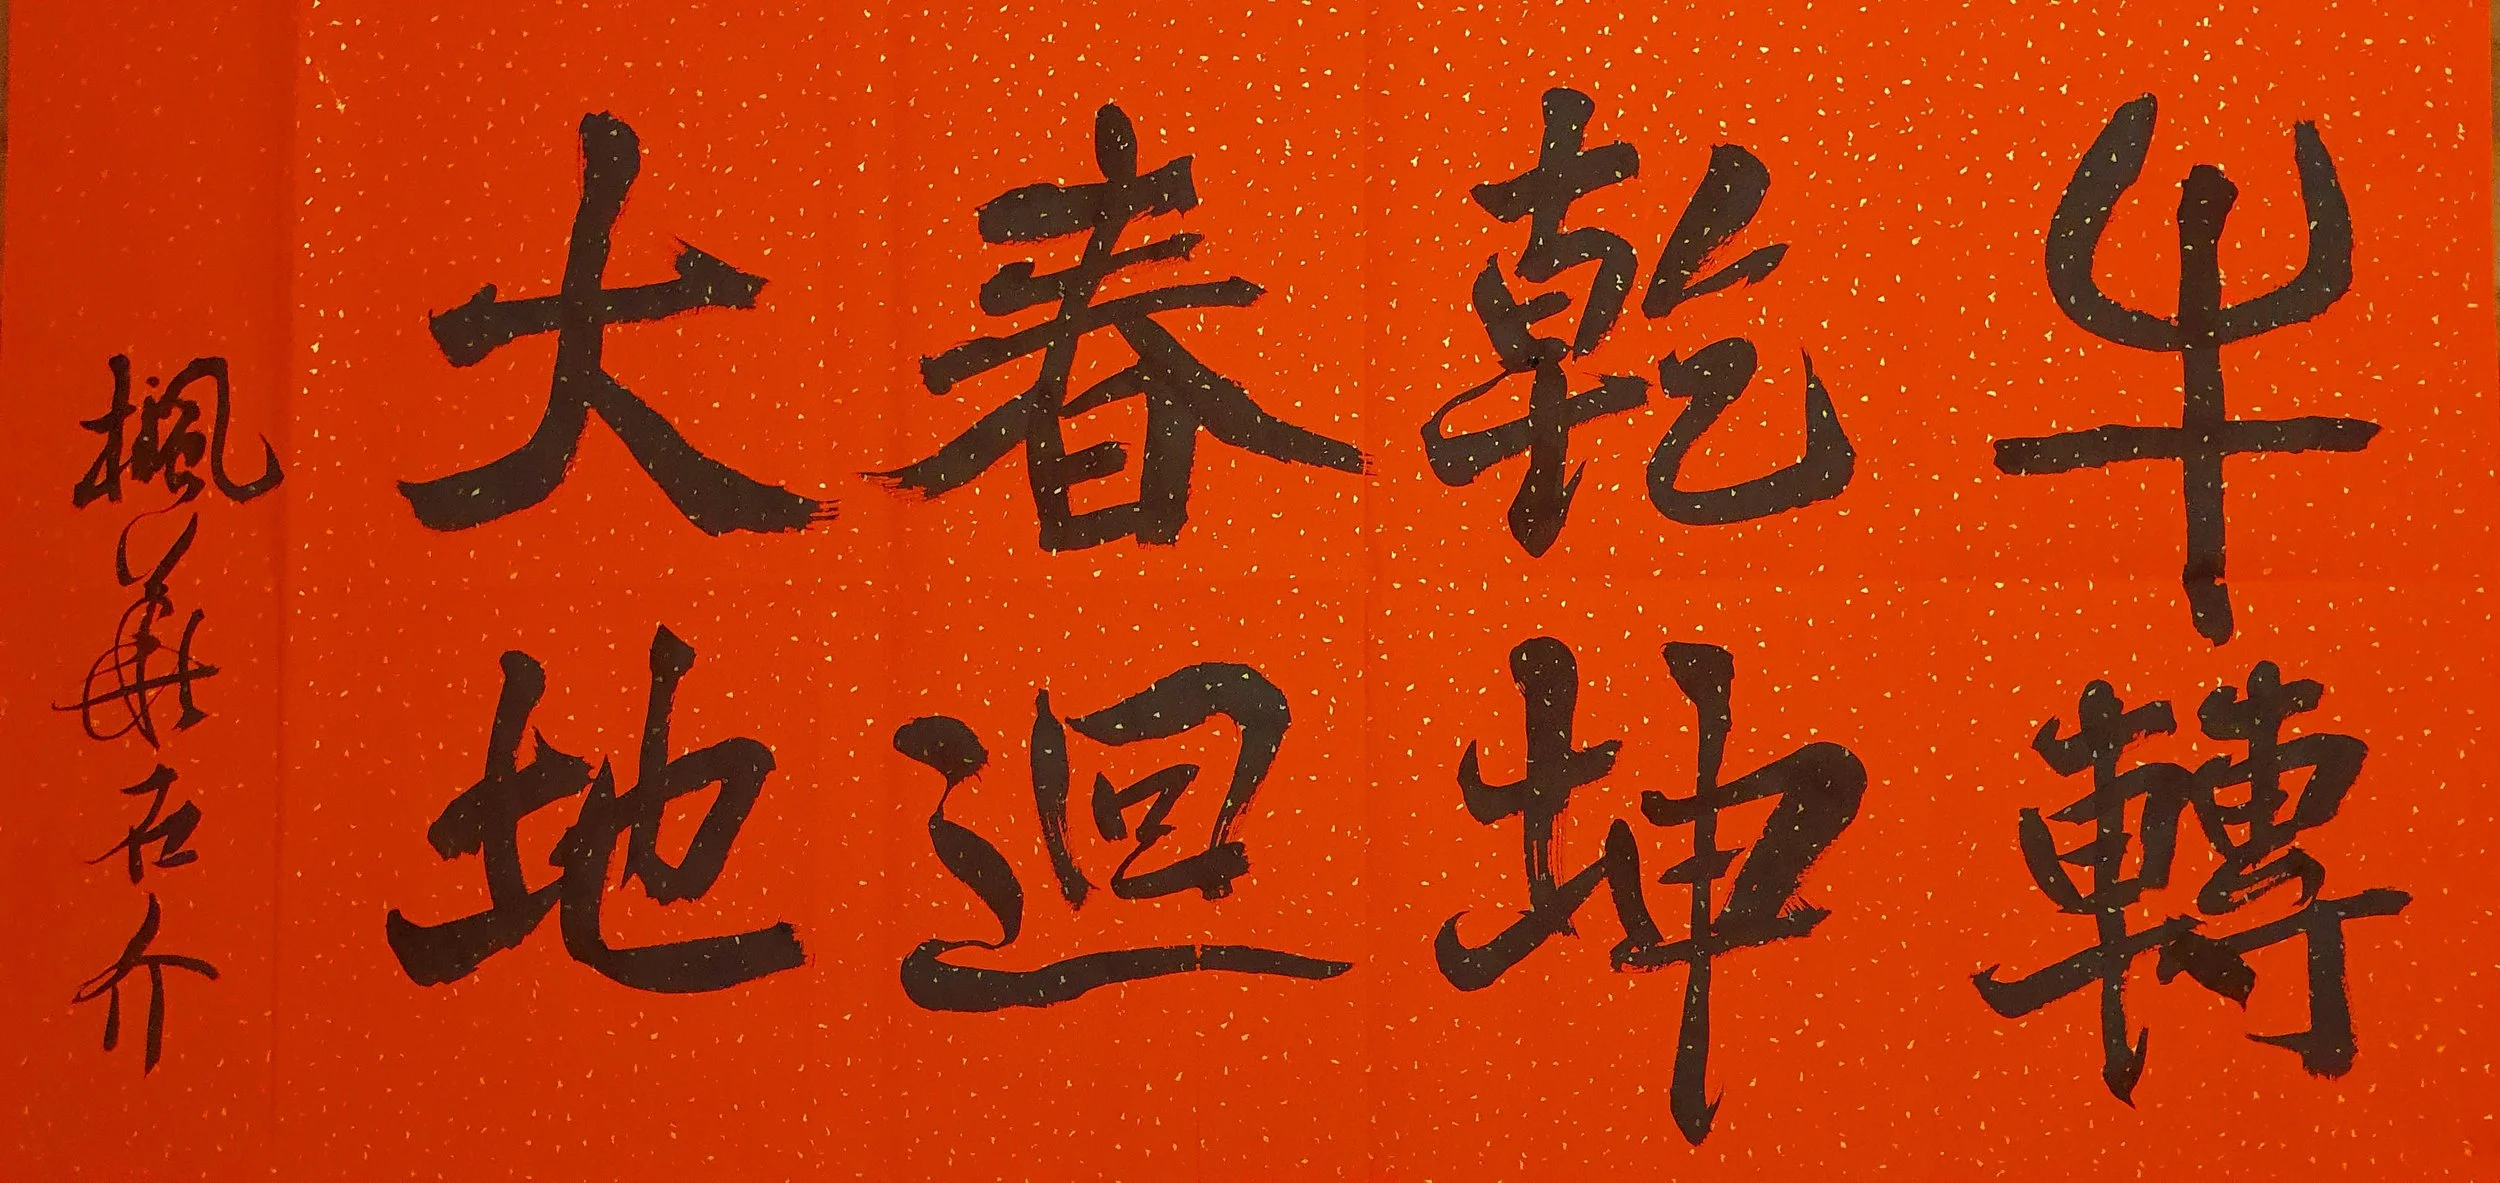 牛轉
乾坤
春迴
大地
楓華石介